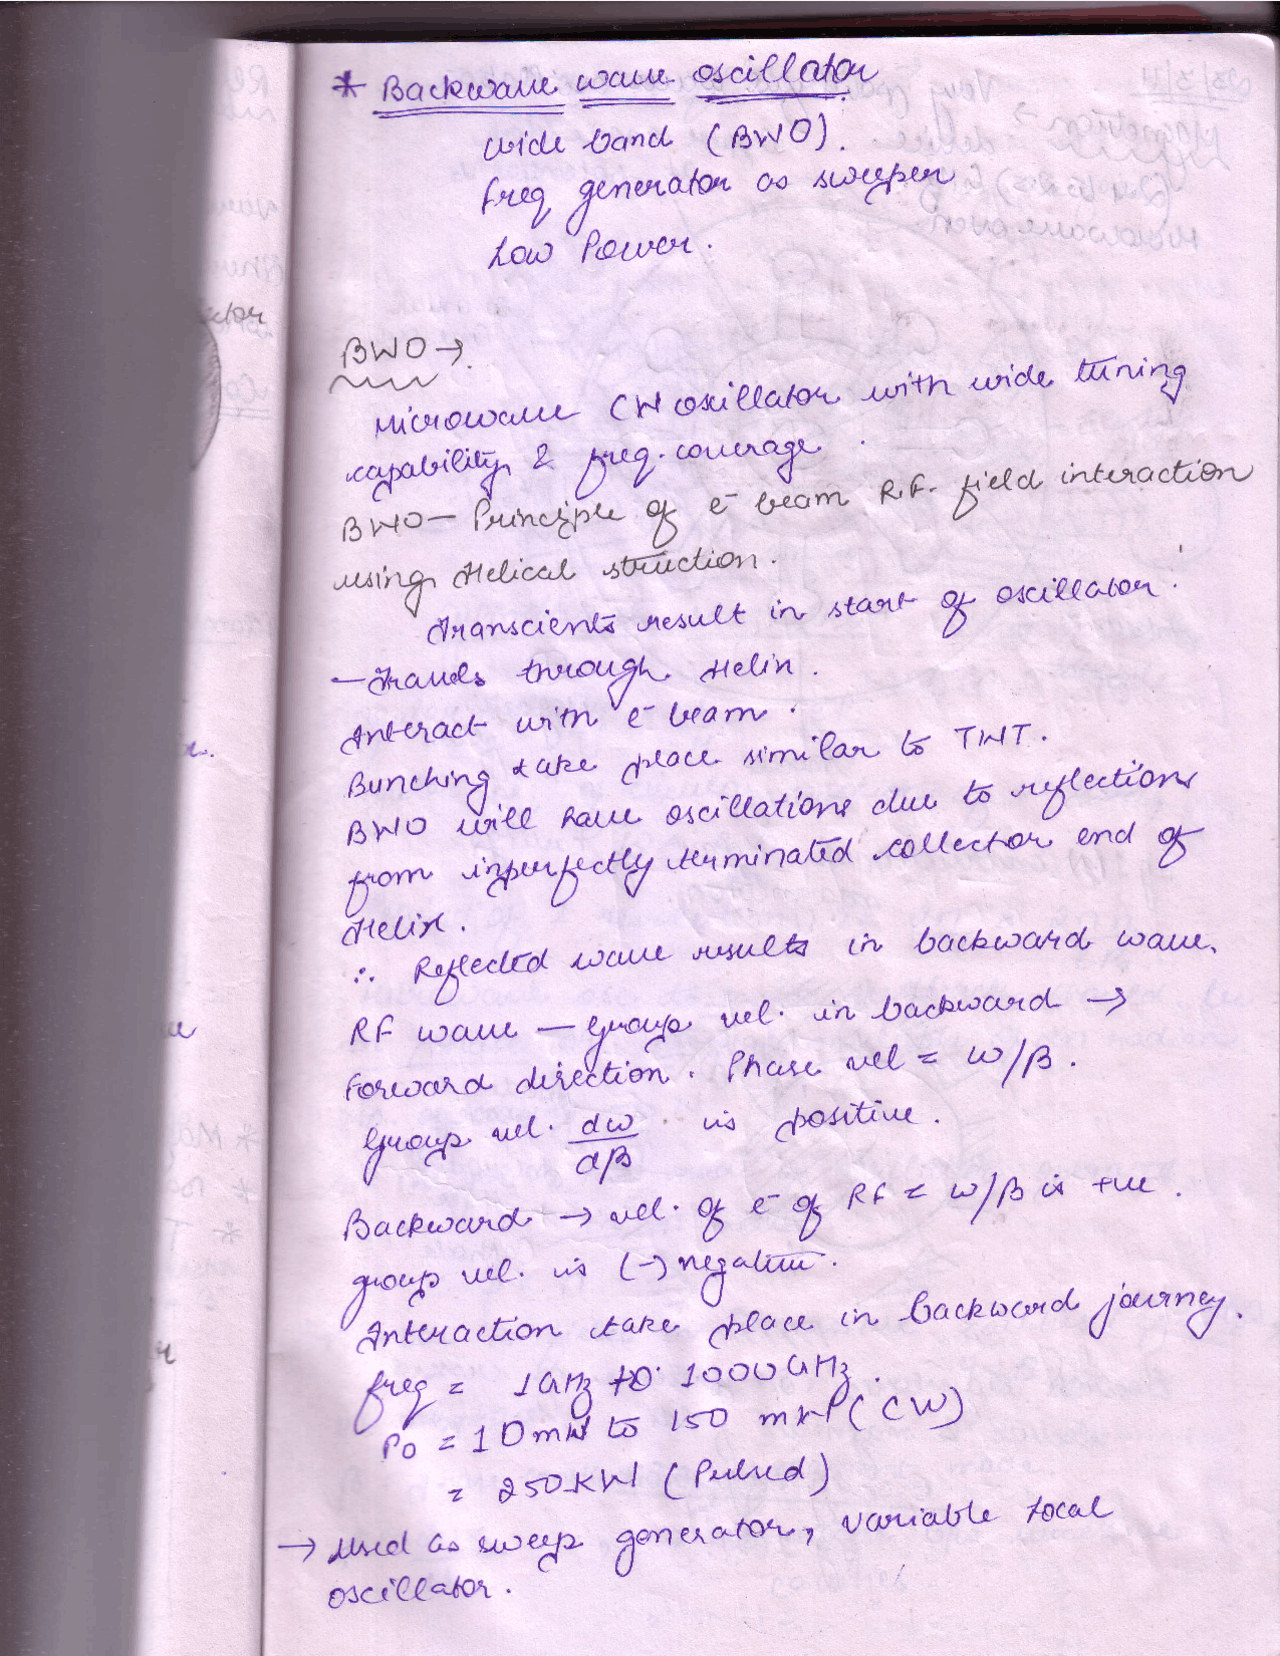 * Backwave wave oscillator
wide band (BWO).
freq generator as sweeper
Low Power.
BWO →
Microwave CW oscillator with wide tuning
capability & freq. coverage.
BWO — Principle of e⁻ beam R.F. field interaction
using Helical struction.
Transcients result in start of oscillator.
— Travels through Helix.
Interact with e⁻ beam.
Bunching take place similar to TWT.
BWO will have oscillations due to reflections
from inperfectly terminated collector end of
Helix.
∴ Reflected wave results in backward wave.
RF wave — Group vel. in backward →
Forward direction. Phase vel = ω/β.
Group vel. dω/dβ is positive.
Backward → vel. of e⁻ of RF = ω/β is +ve.
group vel. is (-) negative.
Interaction take place in backward journey.
freq = 1GHz to 1000GHz.
Po = 10mW to 150 mW (CW)
= 250KW (Pulsed)
→ Used as sweep generator, variable local
oscillator.